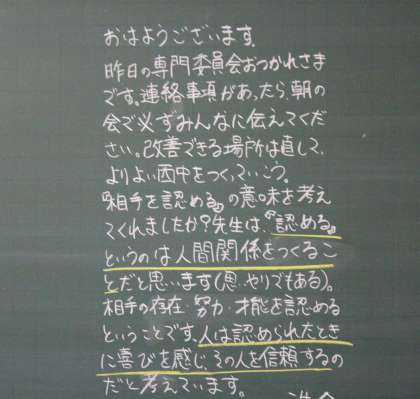 おはようございます.
昨日の専門委員会おつかれさま
です。連絡事項があったら、朝の
会で必ずみんなに伝えてくだ
さい。改善できる場所は直して、
よりよい西中をつくっていこう。
『相手を認める』の意味を考え
てくれましたか?先生は、『認める』
というのは人間関係をつくるこ
とだと思います(思いやりでもある)。
相手の存在・努力・才能を認める
ということです。人は認められたとき
に喜びを感じ、その人を信頼するの
だと考えています。